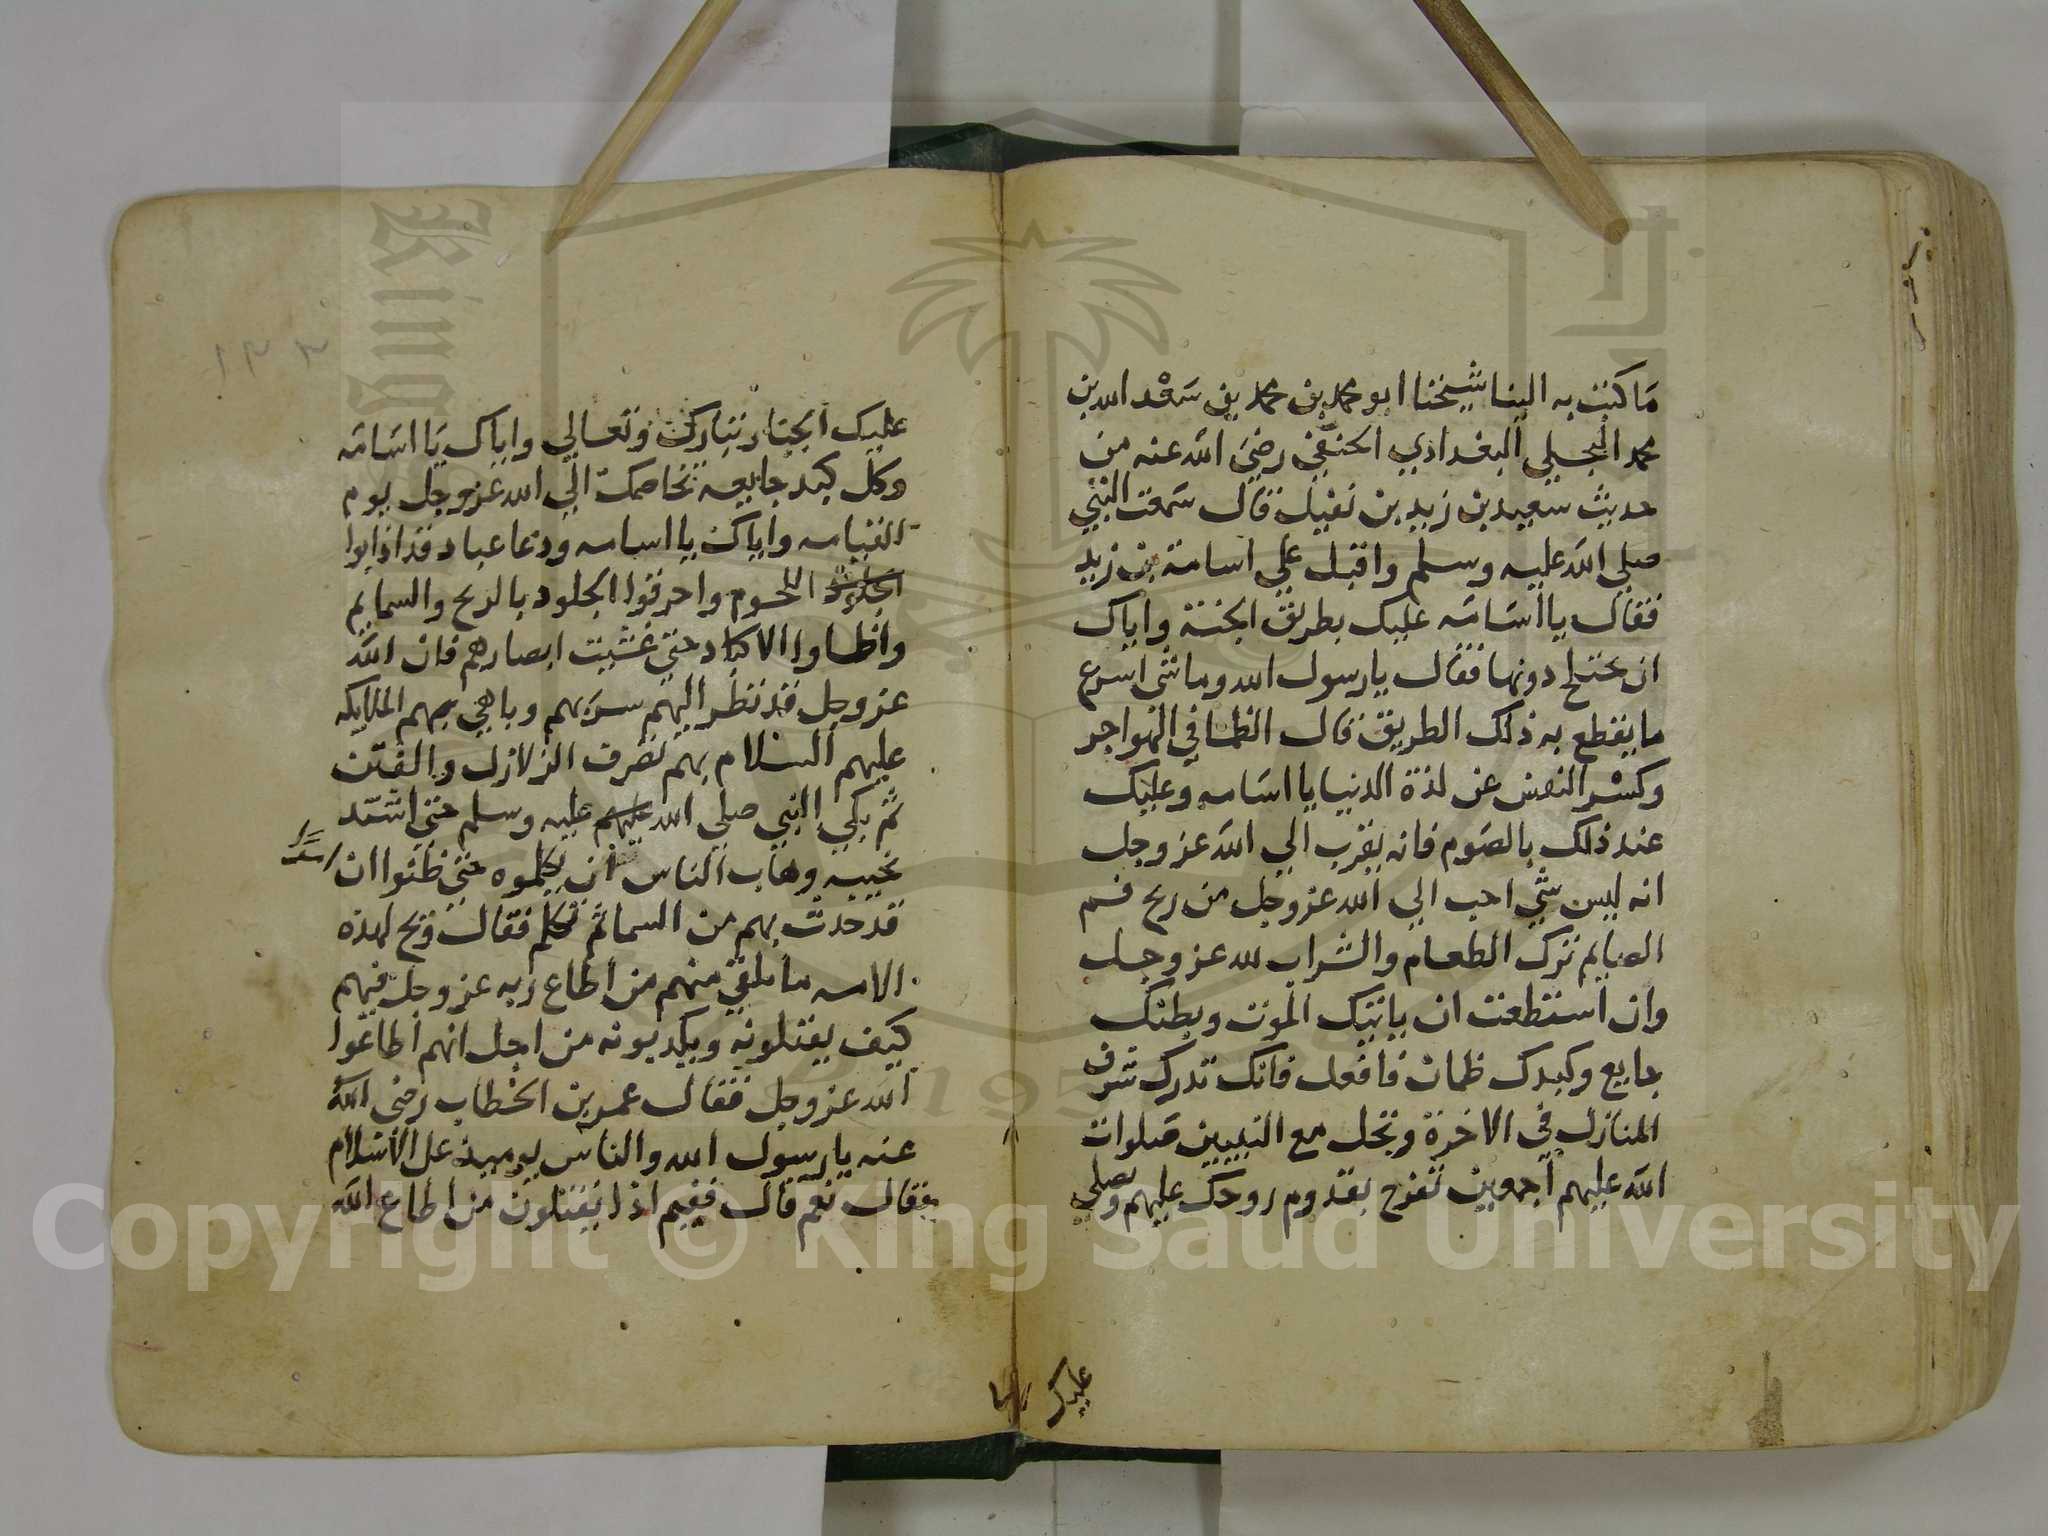 ما كتب به الينا شيخنا ابو محمد بن محمد بن سَعْد الله بن
محمد البجلي البغدادي الحنفي رضي الله عنه من
حديث سعيد بن زيد بن نفيل قال سمعت النبي
صلي الله عليه وسلم واقبل علي اسامة بن زيد
فقال يا اسَامَه عليك بطريق الجنة واياك
ان تختلج دونها فقال يا رسول الله وما شي اسرع
ما يقطع به ذلك الطريق قال الظما في الهواجر
وكسْر النفس عن لذة الدنيا يا اسَامه وعليك
عند ذلك بالصَوم فانه يقرب الي الله عز وجل
انه ليس شي احب الي الله عز وجل من ريح فم
الصايم ترك الطعام والشراب لله عز وجل
وان استطعت ان ياتيك الموت وبطنك
جايع وكبدك ظمان فافعل فانك تدرك شرف
المنازل في الاخرة وتحل مع النبيين صَلوات
الله عليهم اجمعين تفرح بقدوم روحك عليهم وتصلي
عليك
١٣٣
عليك الجبار تبارك وتعالي واياك يا اسَامَه
وكل كبد جايعه تخاصمك الي الله عز وجل يوم
القيامه واياك يا اسامه ودعا عباد قد اذابوا
الجلود اللحوم واحرقوا الجلود بالريح والسمايم
واظماوا الاكباد حتي غشيت ابصارهم فان الله
عز وجل قد نظر اليهم سرّ بهم وباهي بهم الملايكه
عليهم السلام بهم تصرف الزلازل والفتن
ثم بكي النبي صلي الله عليهم عليه وسلم حتي اشتد
نحيبه وهاب الناس ان يكلموه حتي ظنوا ان
قد حدث بهم من السما ثم تكلم فقال ويح لهذه
الامه ما يلقي منهم من اطاع ربه عز وجل فيهم
كيف يقتلونه ويكذبونه من اجل انهم اطاعوا
الله عز وجل فقال عمر بن الخطاب رضي الله
عنه يا رسول الله والناس يوميذ علي الاسْلام
فقال نعم قال ففيم اذا يقتلون من اطاع الله
Copyright © King Saud University
King
195